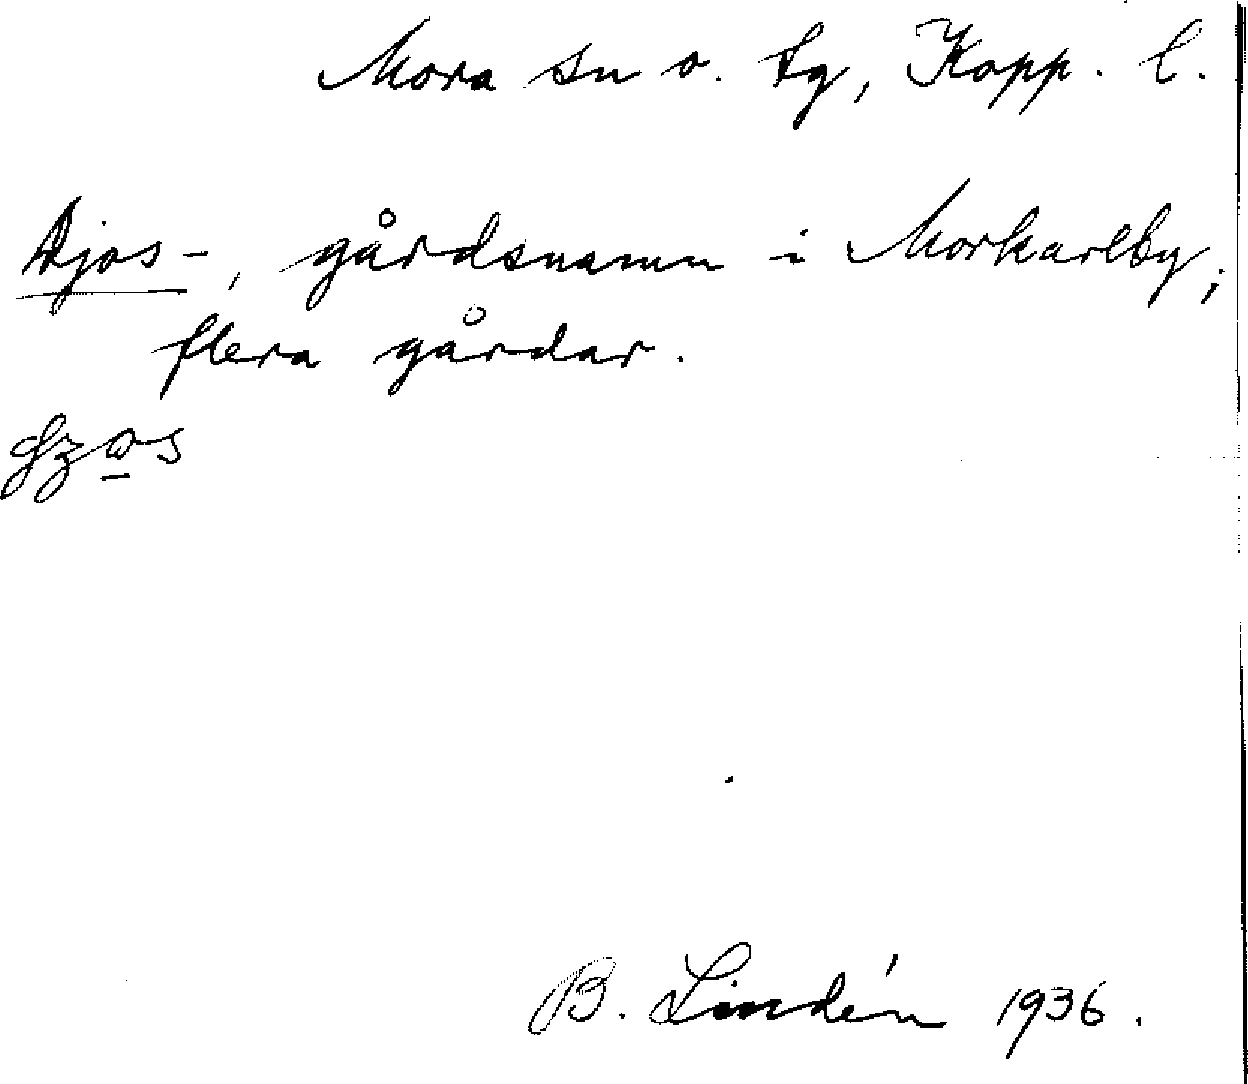 Mora sn o. tg, Kopp. l.
Djos-, gårdsnamn i Morkarlby;
flera gårdar.
B. Lindén 1936.